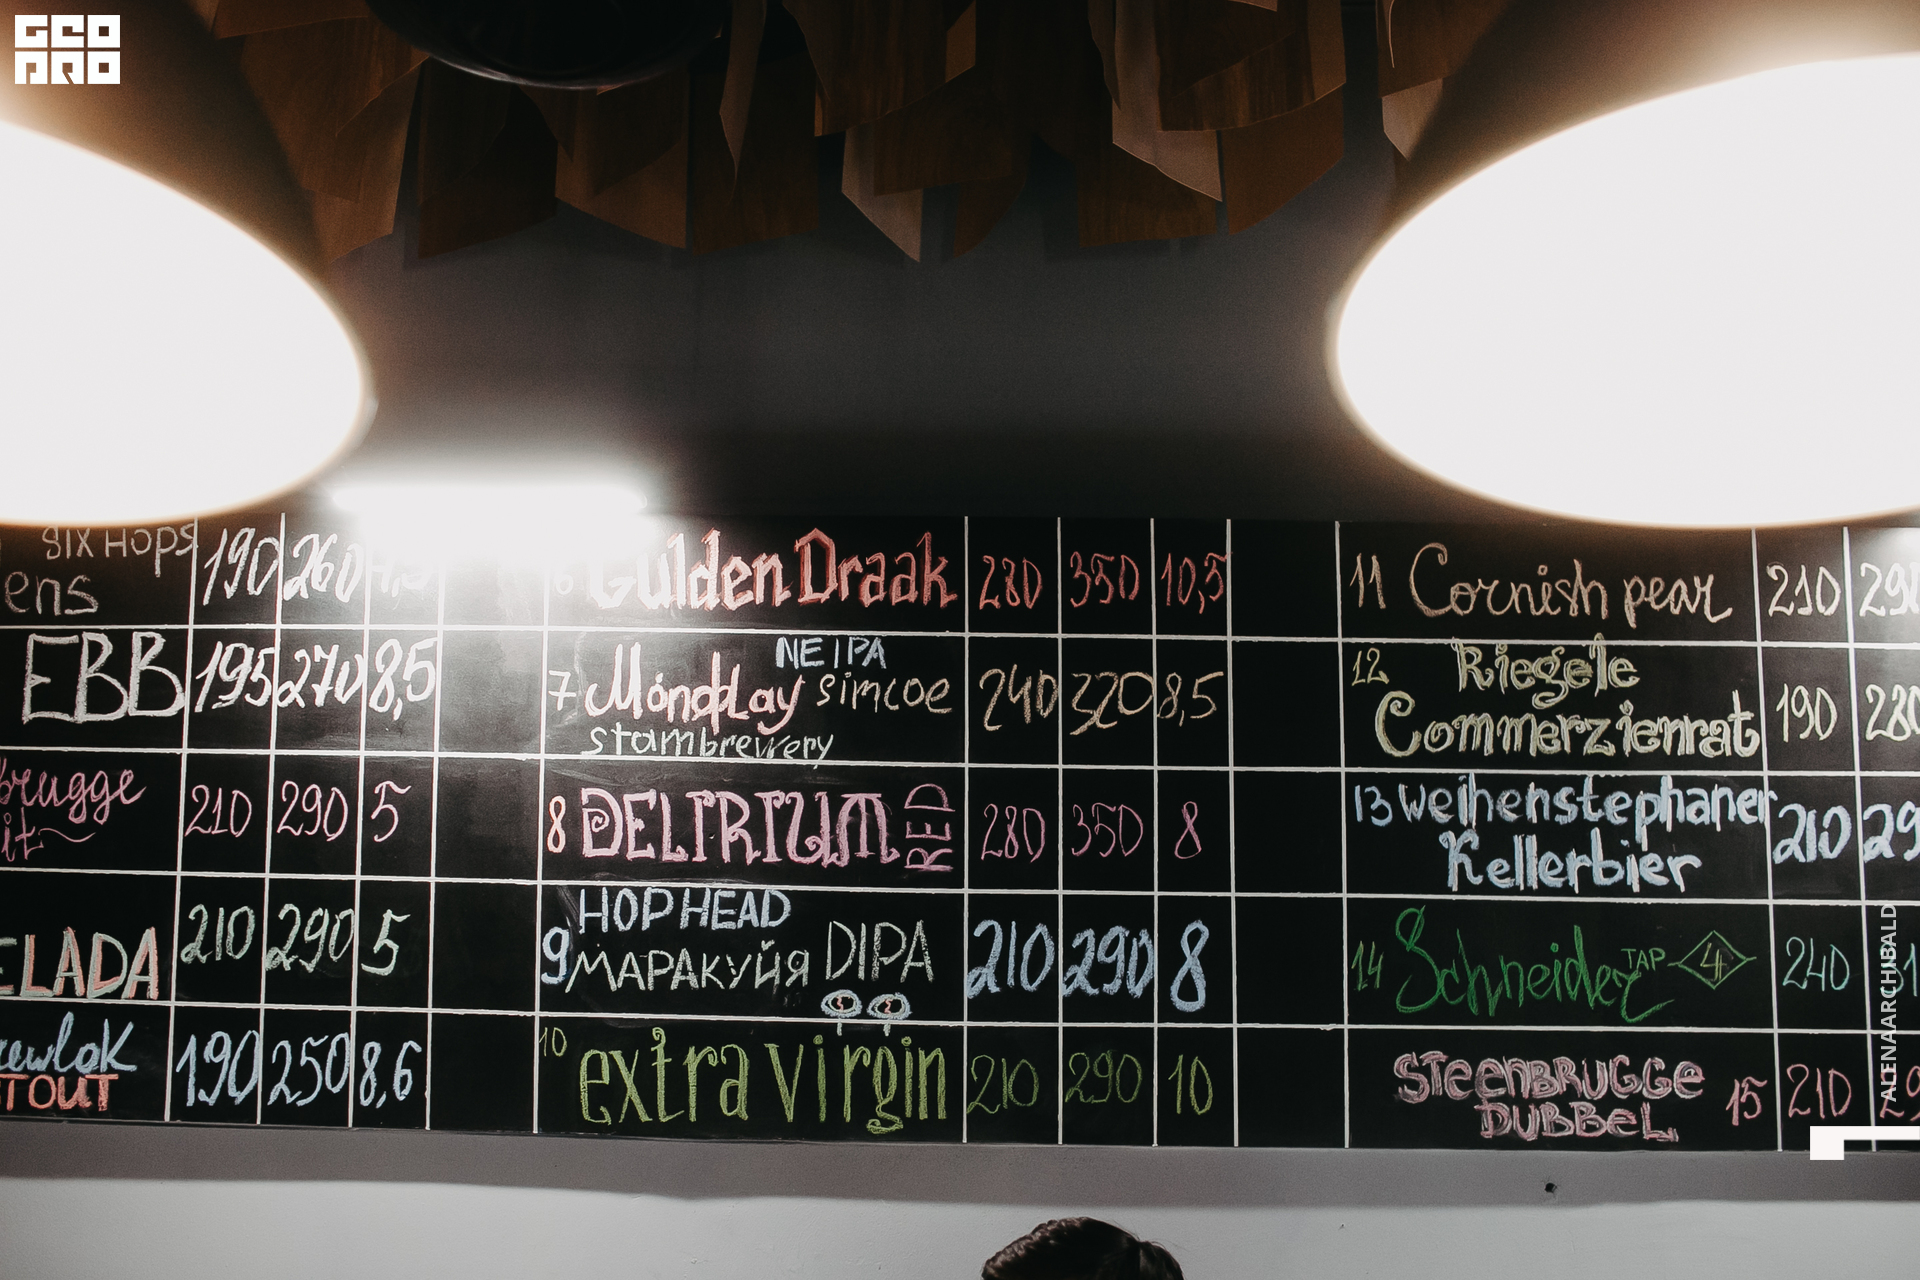 GEO
PRO
SIX HOPS 190 260
ens
EBB 195 270 8,5
brugge 210 290 5
it
ELADA 210 290 5
ewlok 190 250 8,6
TOUT
6 Gulden Draak 280 350 10,5
NEIPA
7 Mondplay simcoe 240 320 8,5
stambrewery
8 DELIRIUM RED 280 350 8
HOPHEAD
9 МАРАКУЙЯ DIPA 210 290 8
10 extra virgin 210 290 10
11 Cornish pear 210 290
12 Riegele
Commerzienrat 190 280
13 weihenstephaner 210 29
Kellerbier
14 Schneider TAP 4 240
STEENBRUGGE
DUBBEL 15 210 29
ALENAARCHIBALD